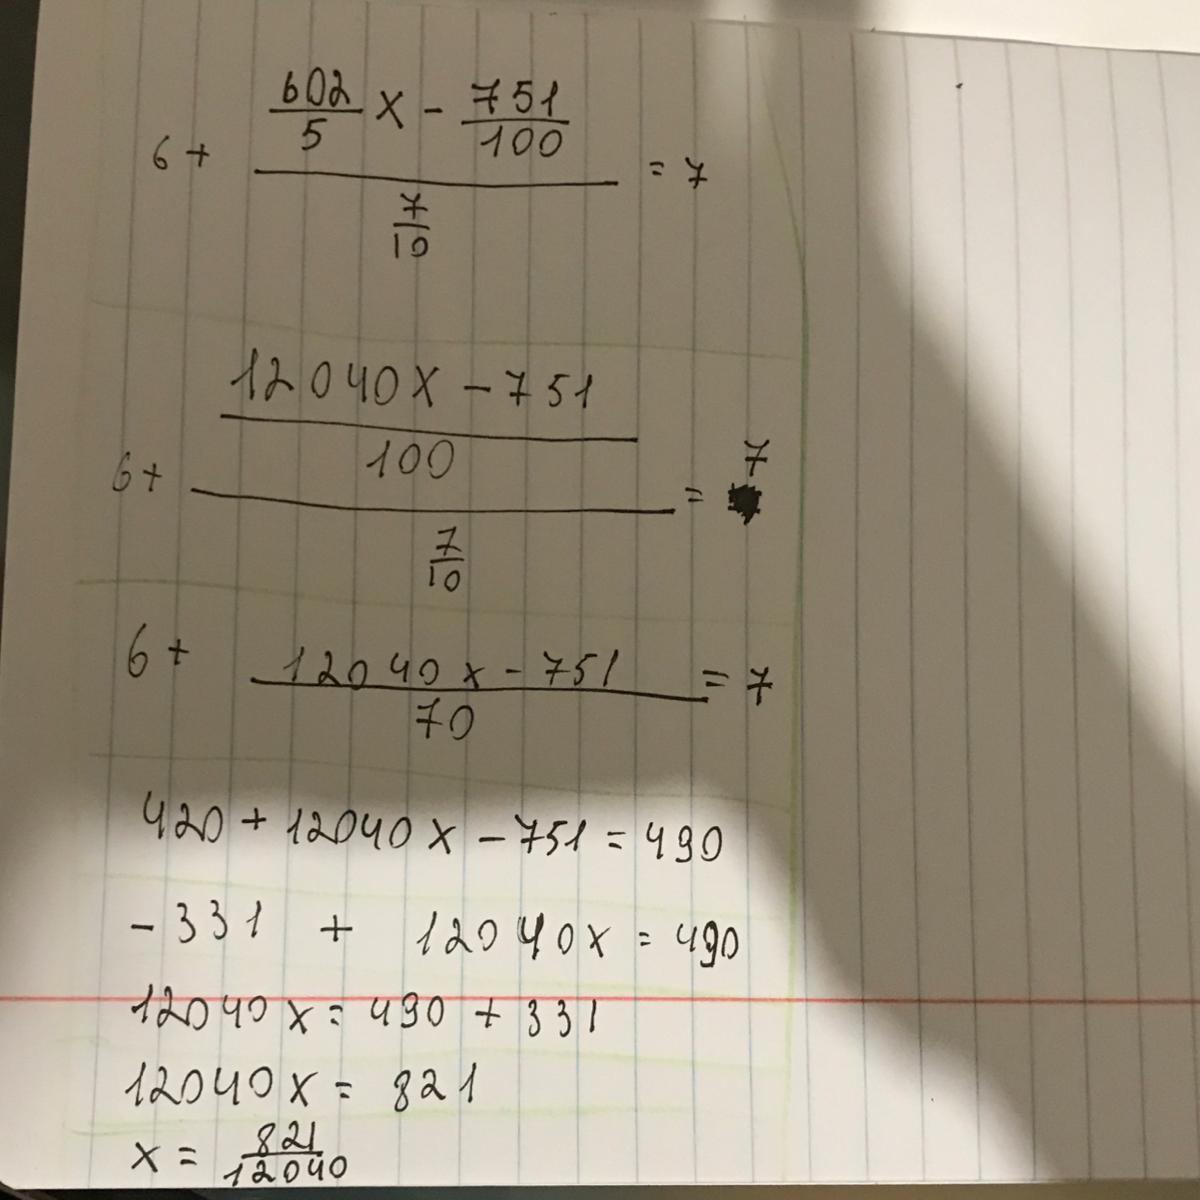 6 + (602/5 x - 751/100) / (7/10) = 7
6 + ((12040x - 751)/100) / (7/10) = 7
6 + (12040x - 751)/70 = 7
420 + 12040x - 751 = 490
-331 + 12040x = 490
12040x = 490 + 331
12040x = 821
x = 821/12040